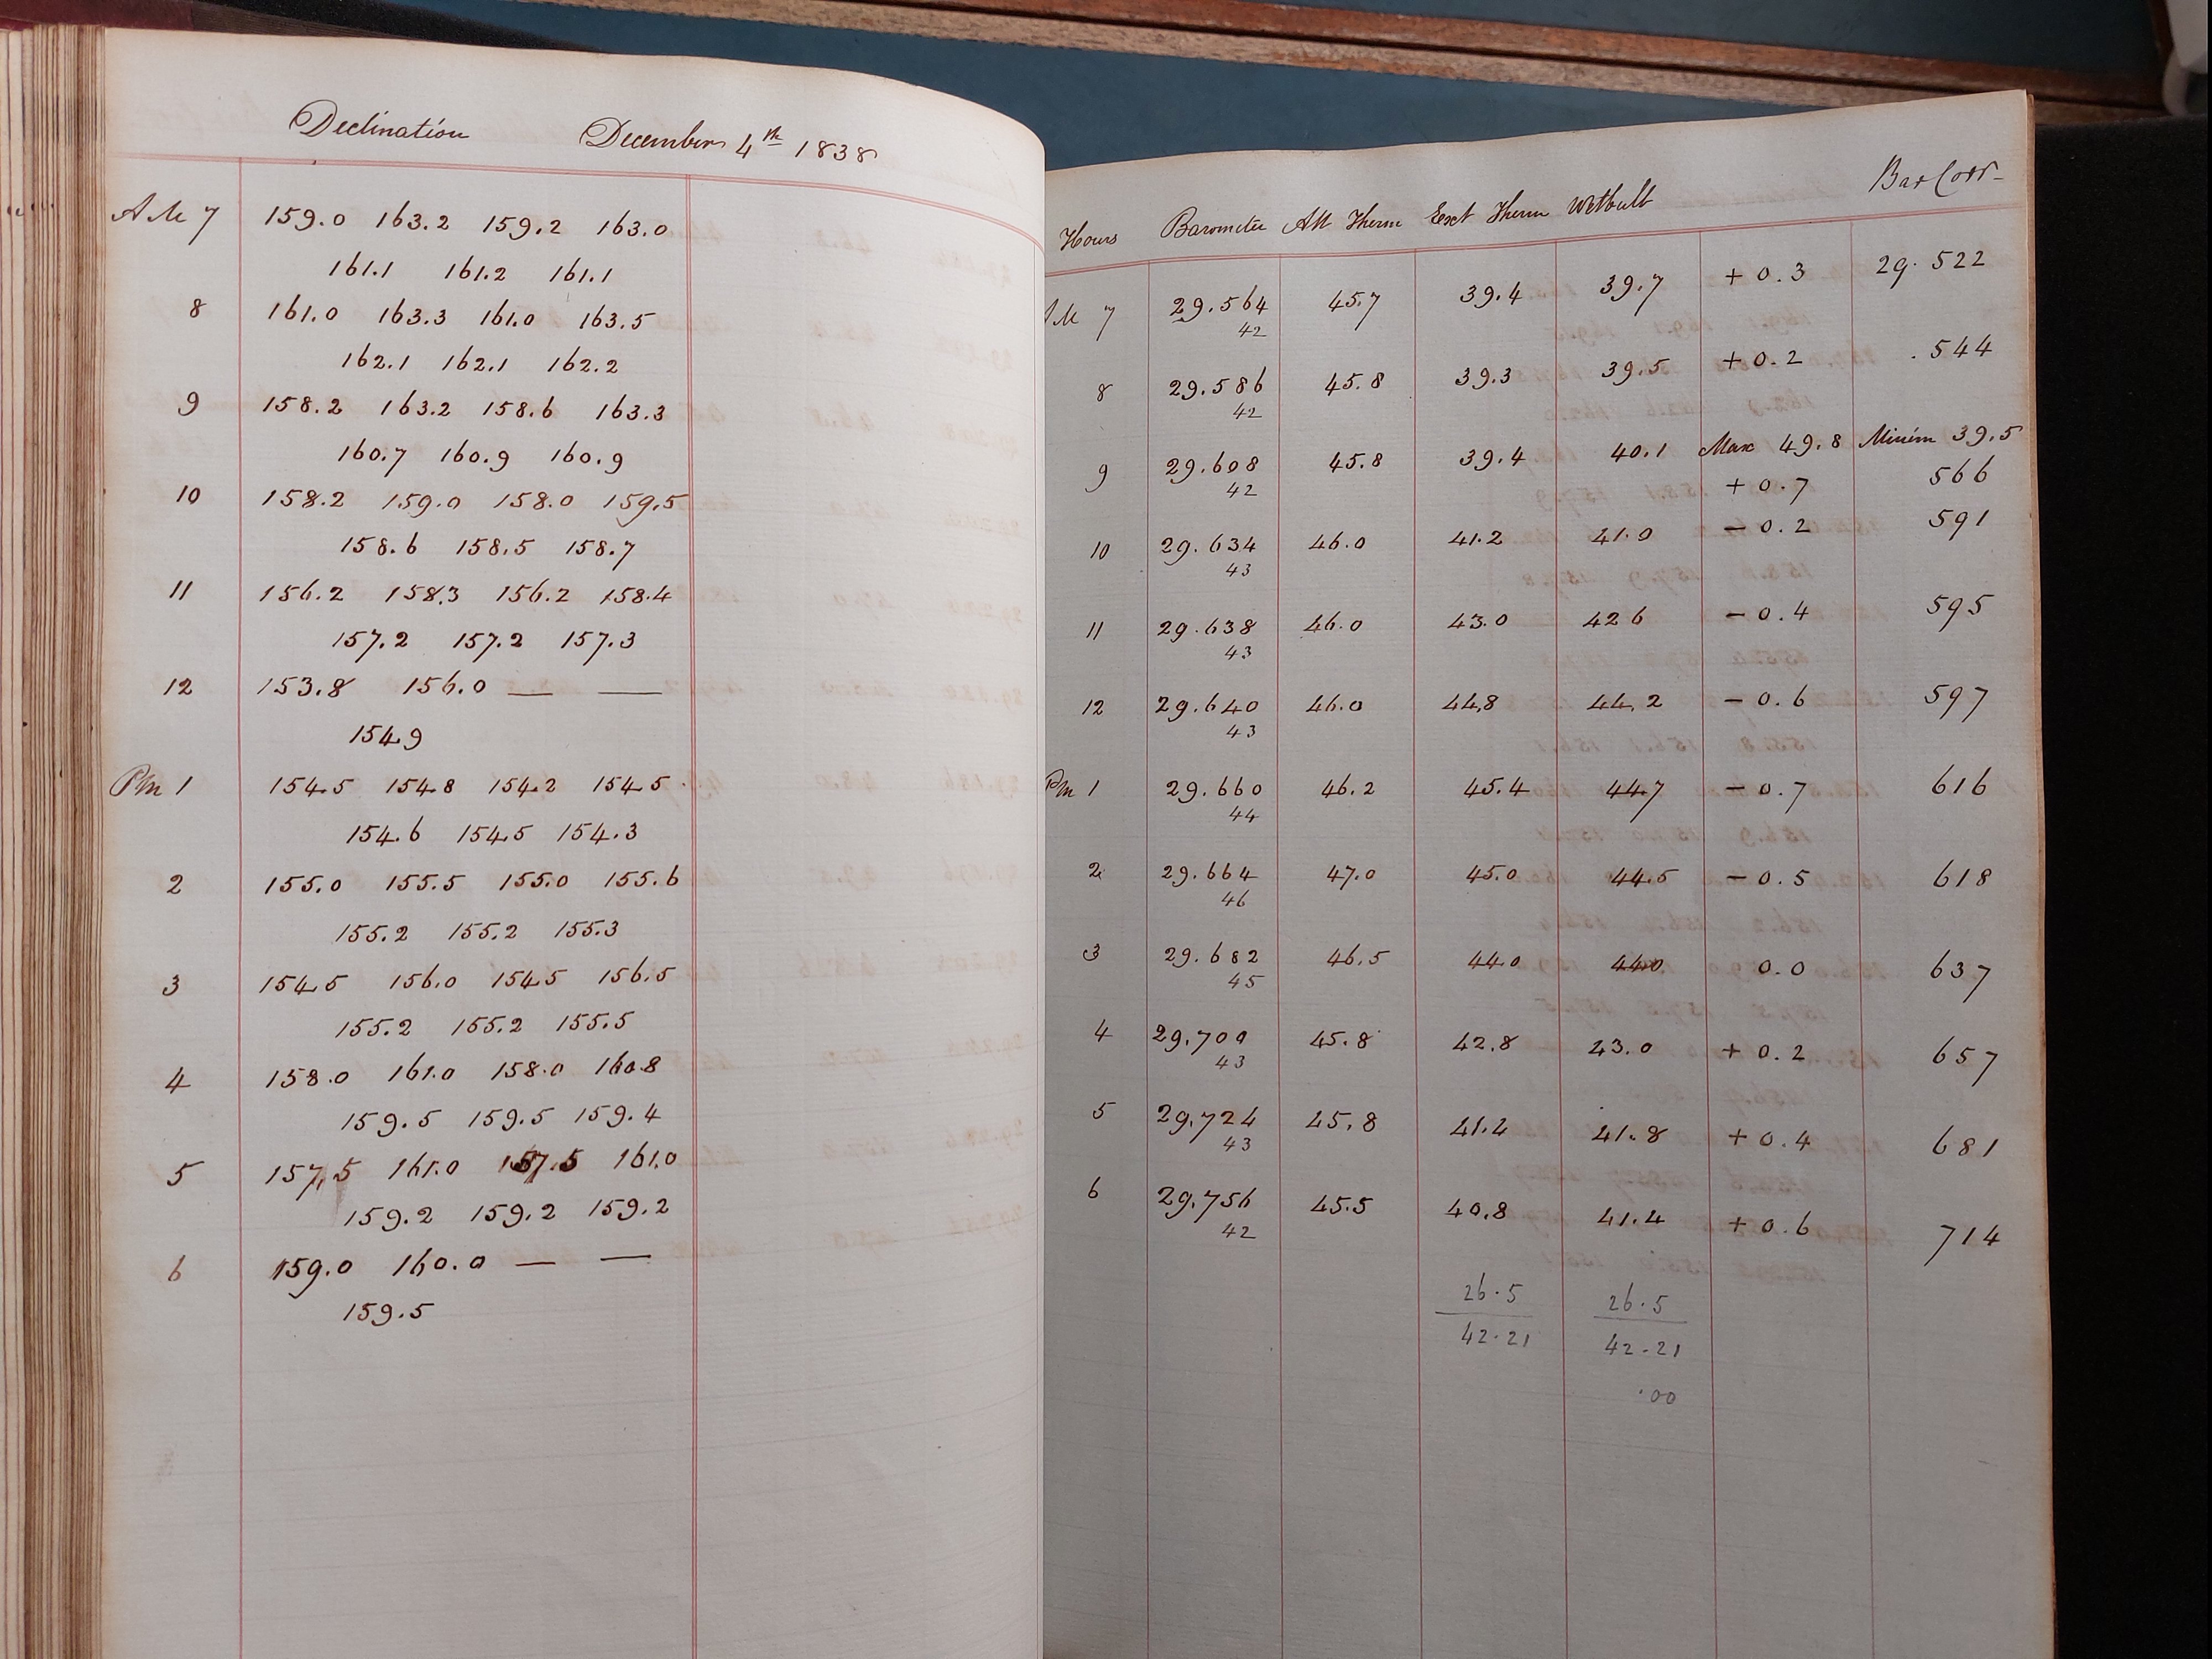 Declination December 4th 1838
AM 7 159.0 163.2 159.2 163.0
161.1 161.2 161.1
8 161.0 163.3 161.0 163.5
162.1 162.1 162.2
9 158.2 163.2 158.6 163.3
160.7 160.9 160.9
10 158.2 159.0 158.0 159.5
158.6 158.5 158.7
11 156.2 158.3 156.2 158.4
157.2 157.2 157.3
12 153.8 156.0 — —
154.9
Pm 1 154.5 154.8 154.2 154.5
154.6 154.5 154.3
2 155.0 155.5 155.0 155.6
155.2 155.2 155.3
3 154.5 156.0 154.5 156.5
155.2 155.2 155.5
4 158.0 161.0 158.0 160.8
159.5 159.5 159.4
5 157.5 161.0 157.5 161.0
159.2 159.2 159.2
6 159.0 160.0 — —
159.5
Hours Barometer Att Therm Ext Therm Wetbulb Bar Corr
AM 7 29.564 45.7 39.4 39.7 + 0.3 29.522
42
8 29.586 45.8 39.3 39.5 + 0.2 .544
42
9 29.608 45.8 39.4 40.1 Max 49.8 Minim 39.5
42 + 0.7 566
10 29.634 46.0 41.2 41.0 - 0.2 591
43
11 29.638 46.0 43.0 42 6 - 0.4 595
43
12 29.640 46.0 44.8 44.2 - 0.6 597
43
Pm 1 29.660 46.2 45.4 44.7 - 0.7 616
44
2 29.664 47.0 45.0 44.5 - 0.5 618
46
3 29.682 46.5 44.0 44.0 0.0 637
45
4 29.700 45.8 42.8 43.0 + 0.2 657
43
5 29.724 45.8 41.4 41.8 + 0.4 681
43
6 29.756 45.5 40.8 41.4 + 0.6 714
42
26.5 26.5
42.21 42.21
.00